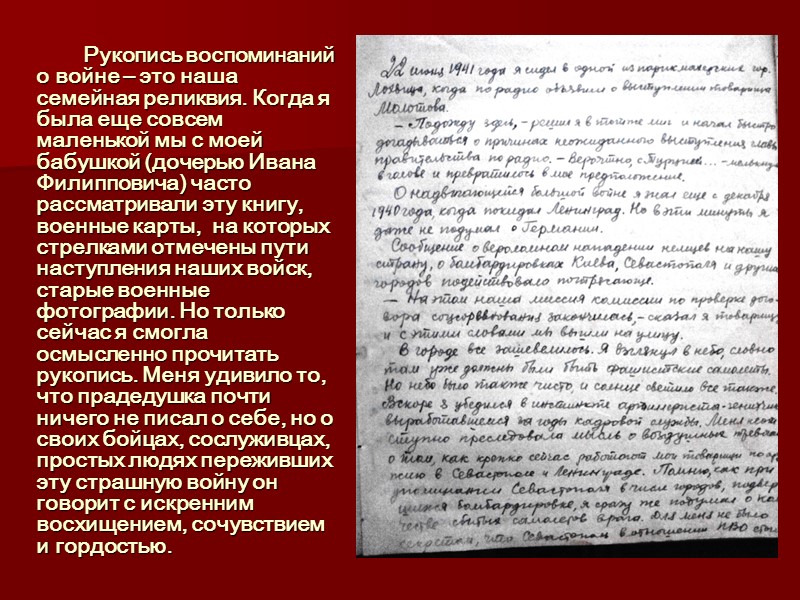 Рукопись воспоминаний
о войне – это наша
семейная реликвия. Когда я
была еще совсем
маленькой мы с моей
бабушкой (дочерью Ивана
Филипповича) часто
рассматривали эту книгу,
военные карты, на которых
стрелками отмечены пути
наступления наших войск,
старые военные
фотографии. Но только
сейчас я смогла
осмысленно прочитать
рукопись. Меня удивило то,
что прадедушка почти
ничего не писал о себе, но о
своих бойцах, сослуживцах,
простых людях переживших
эту страшную войну он
говорит с искренним
восхищением, сочувствием
и гордостью.
22 июня 1941 года я сидел в одной из парикмахерских гор.
Лохвица, когда по радио объявили о выступлении товарища
Молотова.
– Подожду здесь, – решил я в тот же миг и начал быстро
догадываться о причинах неожиданного выступления главы
правительства по радио. – Вероятно, с Турцией... –
в голове и превратилось в мое предположение.
О надвигающейся большой войне я знал еще с декабря
1940 года, когда покидал Ленинград. Но в эти минуты я
даже не подумал о Германии.
Сообщение о вероломном нападении немцев на нашу
страну, о бомбардировках Киева, Севастополя и других
городов подействовало потрясающе.
– На этом наша миссия комиссии по проверке дого-
вора соцсоревнования закончилась, – сказал я товарищу
и с этими словами мы вышли на улицу.
В городе все зашевелилось. Я взглянул в небо, словно
там уже должны были быть фашистские самолеты.
Но небо было также чисто, и солнце светило все также.
Вскоре я убедился в инстинкте
выработавшемся за годы кадровой службы. Меня неот-
ступно преследовала мысль о воздушных
о том, как крепко сейчас работают мои товарищи по ору-
жию в Севастополе и Ленинграде. Помню, как при
упоминании Севастополя в числе городов, подверг-
шихся бомбардировке, я сразу же подумал о ко
честве сбитых самолетов врага. Для меня не было
секретом, что Севастополь в отношении ПВО